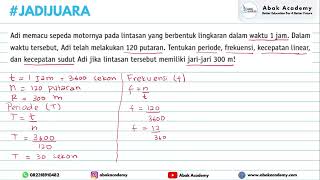 #JADIJUARA
Abak Academy
Adi memacu sepeda motornya pada lintasan yang berbentuk lingkaran dalam waktu 1 jam. Dalam
waktu tersebut, Adi telah melakukan 120 putaran. Tentukan periode, frekuensi, kecepatan linear,
dan kecepatan sudut Adi jika lintasan tersebut memiliki jari-jari 300 m!
t = 1 Jam = 3600 sekon
n = 120 putaran
R = 300 m
Periode (T)
T = t/n
T = 3600/120
T = 30 sekon
Frekuensi (f)
f = n/t
f = 120/3600
f = 12/360
082218910482
abakacademy
abakacademy
www.abakacademy.com